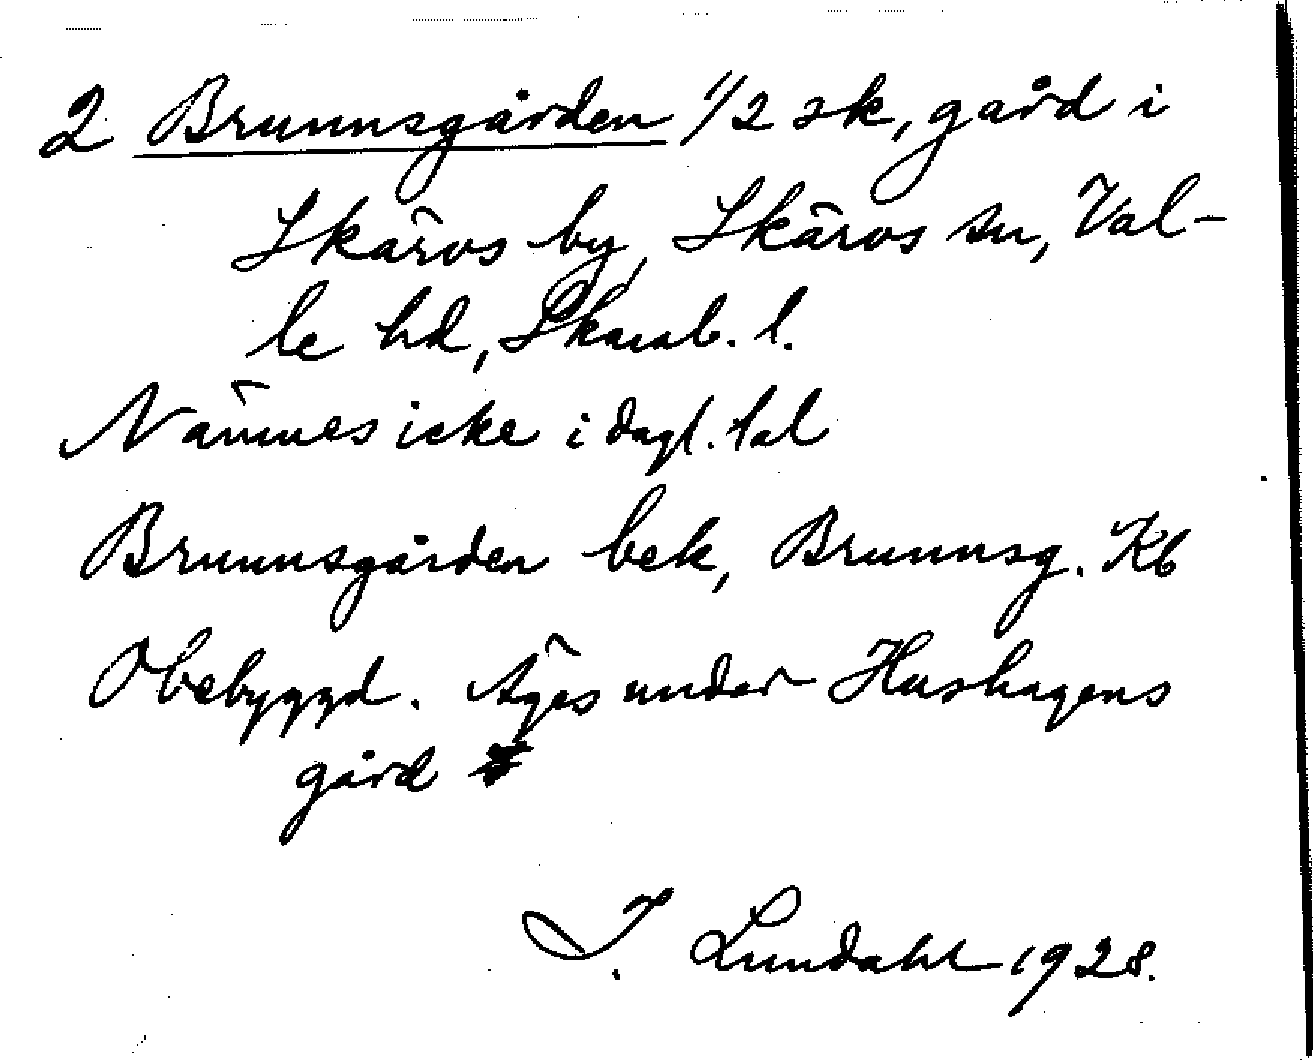 2 Brunnsgården 1/2 sk, gård i
Skärvs by, Skärvs sn, Val-
le hd, Skarab. l.
Nämnes icke i dagl. tal
Brunnsgården bek, Brunnsg. Kb
Obebyggd. Äges under Hushagens
gård
I. Lundahl 1928.